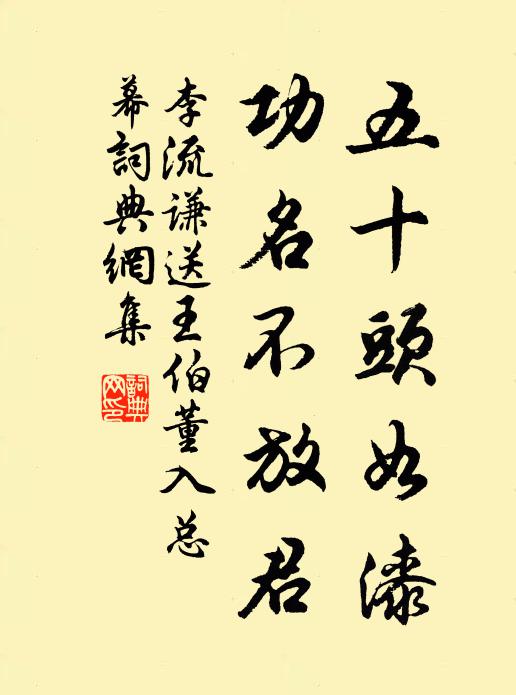 五十頭如漆
功名不放君
李流謙送王伯董入总
幕詞典網集
詞典
网印